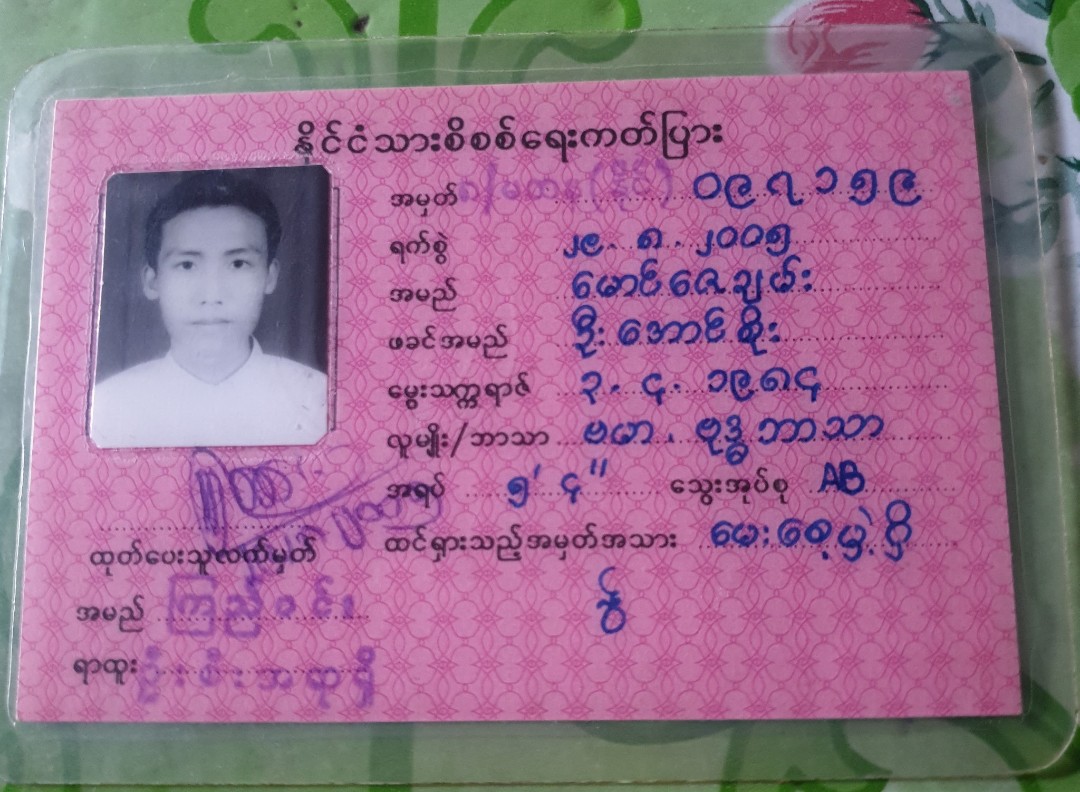 နိုင်ငံသားစိစစ်ရေးကတ်ပြား
အမှတ် ၈/မတန(နိုင်) ၀၉၇၁၅၉
ရက်စွဲ ၂၉.၈.၂၀၀၅
အမည် မောင်ဇေချမ်း
ဖခင်အမည် ဦးအောင်စိုး
မွေးသက္ကရာဇ် ၃.၄.၁၉၈၄
လူမျိုး/ဘာသာ ဗမာ . ဗုဒ္ဓဘာသာ
အရပ် ၅' ၄" သွေးအုပ်စု AB
ထင်ရှားသည့်အမှတ်အသား မေးစေ့မှဲ့ရှိ
၍
ထုတ်ပေးသူလက်မှတ်
အမည် ကြည်ဝင်း
ရာထူး ဦးစီးအရာရှိ